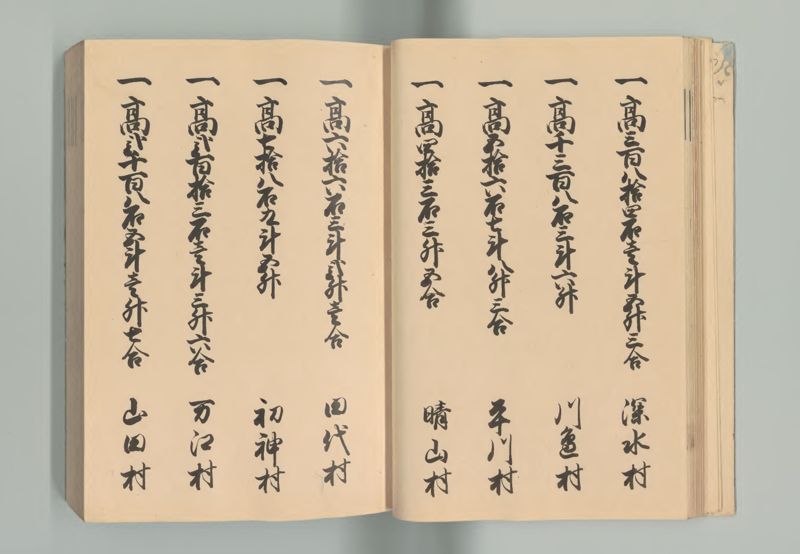 一高三百八拾四石壱斗五升三合 深水村
一高千三百八石三斗六升 川邉村
一高五拾六石七斗八升三合 平川村
一高四拾三石三升五合 晴山村
一高六拾六石三斗弐升壱合 田代村
一高七拾八石九斗五升 初神村
一高弐百拾三石壱斗三升六合 万江村
一高弐千百八石五斗壱升七合 山田村